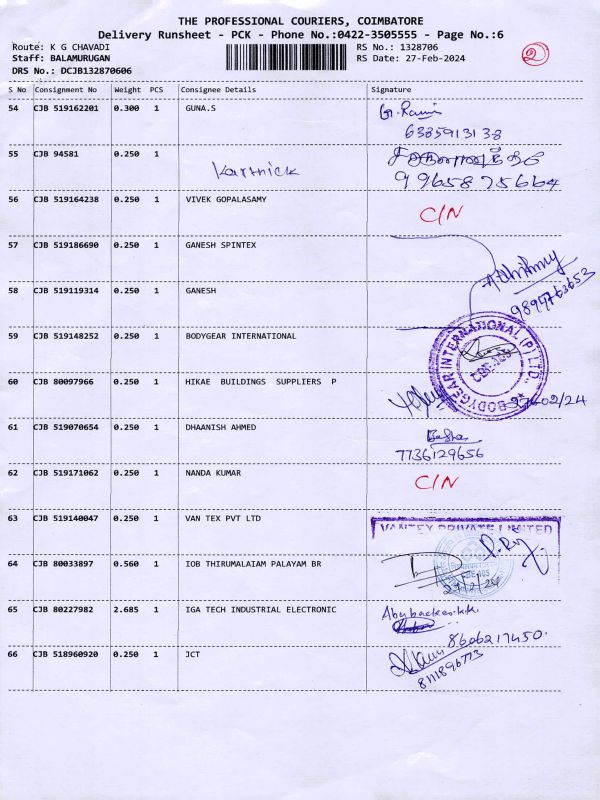 THE PROFESSIONAL COURIERS, COIMBATORE
Delivery Runsheet - PCK - Phone No.:0422-3505555 - Page No.:6
Route: K G CHAVADI
Staff: BALAMURUGAN
DRS No.: DCJB132870606
RS No.: 1328706
RS Date: 27-Feb-2024
2
S No Consignment No Weight PCS Consignee Details Signature
54 CJB 519162201 0.300 1 GUNA.S
6385913138
55 CJB 94581 0.250 1 Karthick
9965875664
56 CJB 519164238 0.250 1 VIVEK GOPALASAMY C/N
57 CJB 519186690 0.250 1 GANESH SPINTEX
58 CJB 519119314 0.250 1 GANESH
9894763653
59 CJB 519148252 0.250 1 BODYGEAR INTERNATIONAL
BODYGEAR INTERNATIONAL (P) LTD.
CBE-105
60 CJB 80097966 0.250 1 HIKAE BUILDINGS SUPPLIERS P
61 CJB 519070654 0.250 1 DHAANISH AHMED
7736129656
62 CJB 519171062 0.250 1 NANDA KUMAR C/N
63 CJB 519140047 0.250 1 VAN TEX PVT LTD
VANTEX PRIVATE LIMITED
64 CJB 80033897 0.560 1 IOB THIRUMALAIAM PALAYAM BR
CBE-105
27/2/24
65 CJB 80227982 2.685 1 IGA TECH INDUSTRIAL ELECTRONIC
8606217450.
66 CJB 518960920 0.250 1 JCT
8111896773